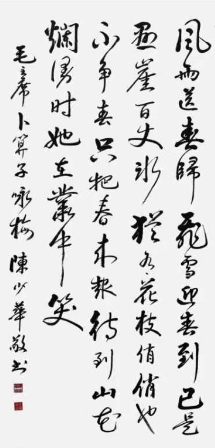 風雨送春歸飛雪迎春到已是
悬崖百丈冰猶有花枝俏俏也
不争春只把春来報待到山花
爛漫时她在叢中笑
毛主席卜算子咏梅 陳少華敬书